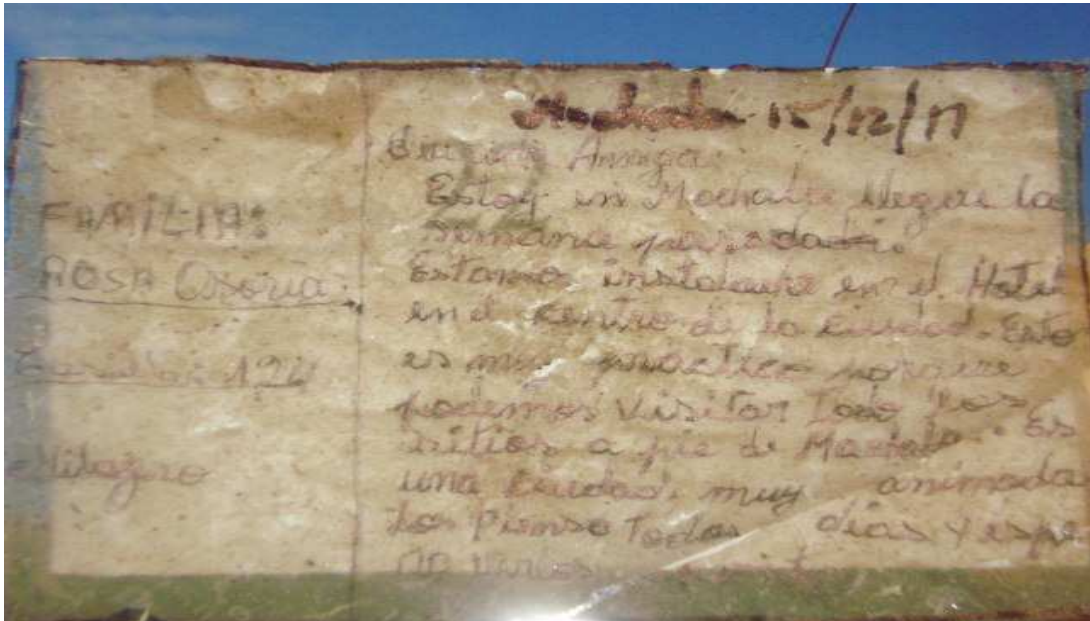 FAMILIA:
ROSA Osorio.
124
Milagro
Machala 15/12/11
Querida Amiga:
Estoy en Machala llegue la
semana pasada.
Estamos instalados en el Hotel
en el centro de la ciudad. Esto
es muy practico porque
podemos visitar todo los
sitios a pie de Machala. Es
una ciudad muy animada
Los Pienso Todos dias y espe
ro verlos